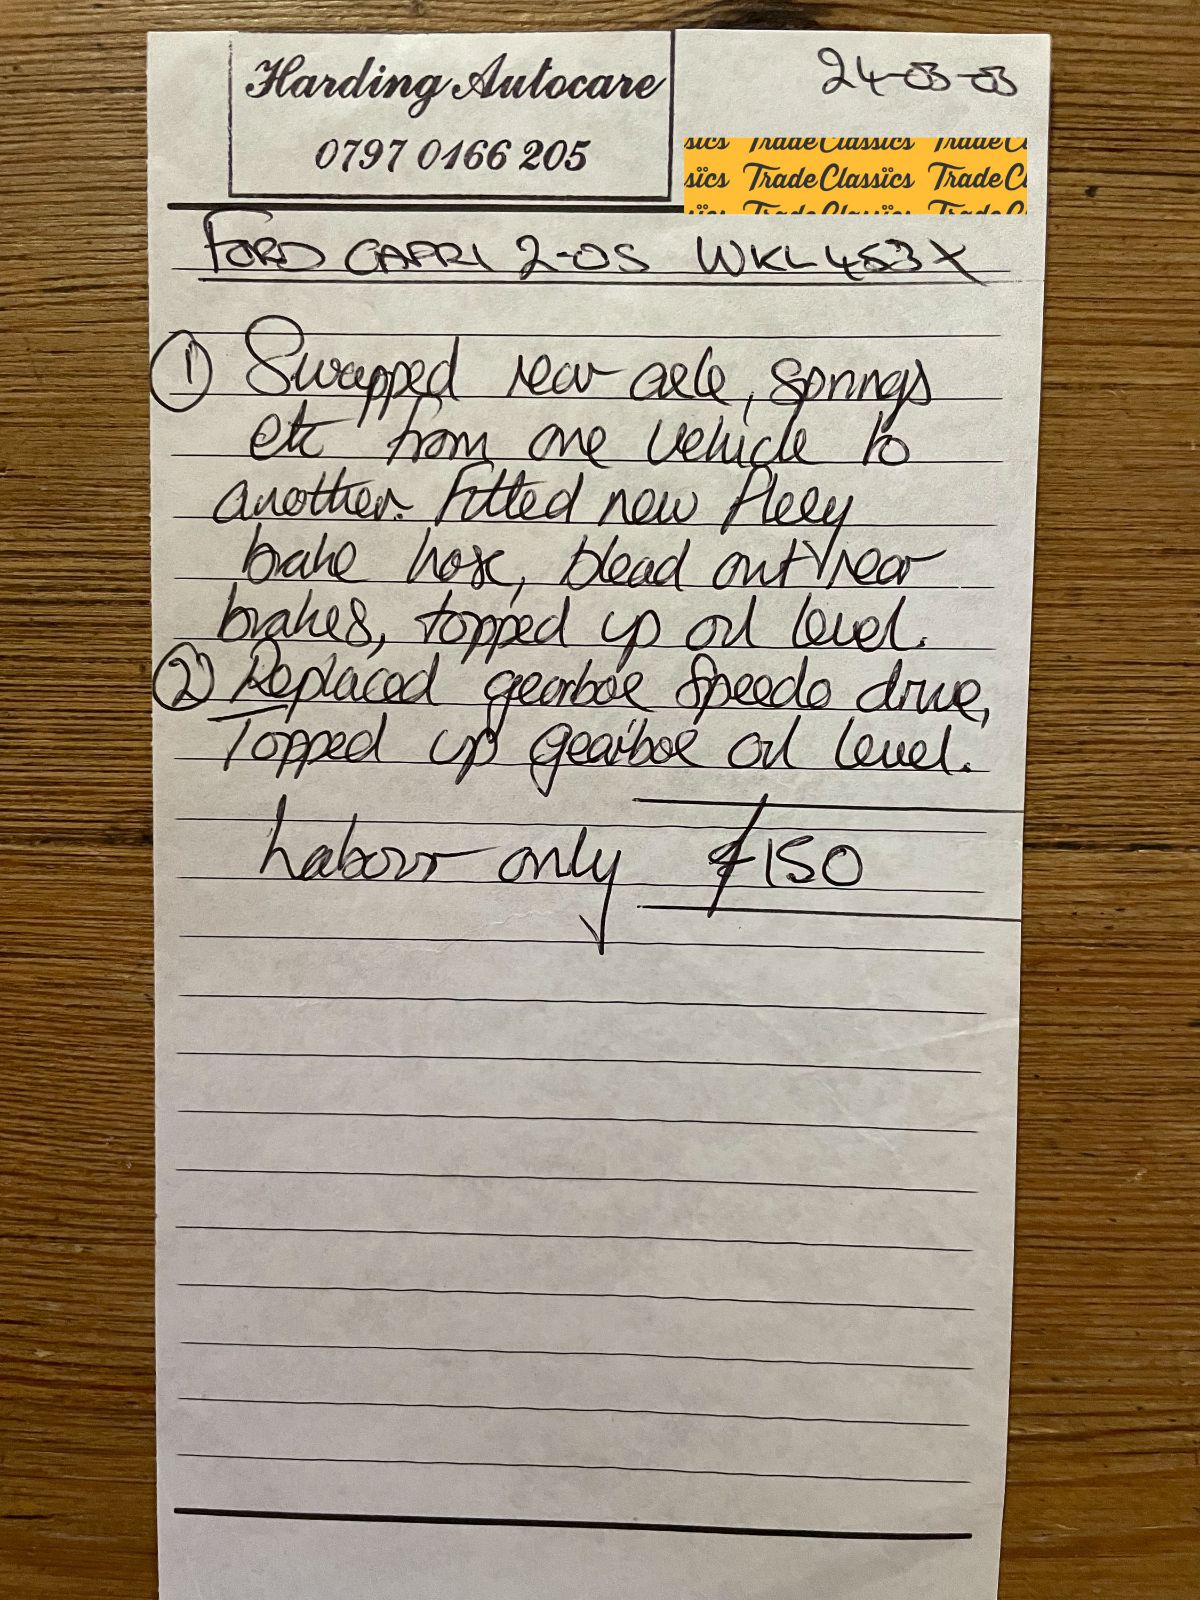 Harding Autocare
0797 0166 205
24-03-03
sics TradeClassics TradeCl
sïcs TradeClassïcs TradeCl
TradeClassïcs TradeC
FORD CAPRI 2-0S WKL 453X
1) Swapped rear axle, springs
etc from one vehicle to
another. Fitted new flexy
brake hose, blead out rear
brakes, topped up oil level.
2) Replaced gearbox speedo drive,
Topped up gearbox oil level.
Labour only £150